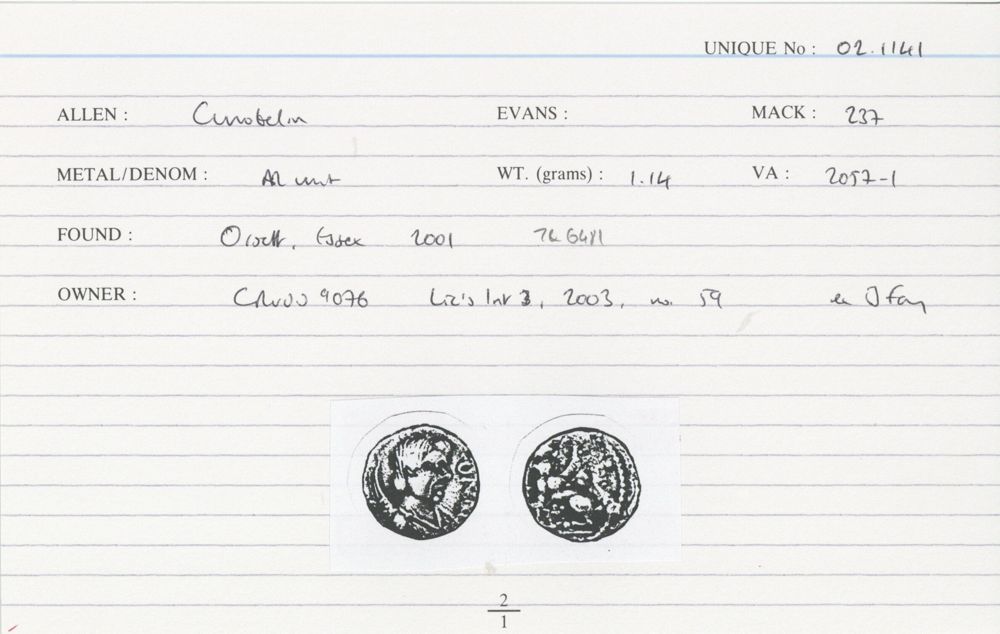 UNIQUE No : 02.1141
ALLEN : Cunobelin EVANS : MACK : 237
METAL/DENOM : AR unit WT. (grams) : 1.14 VA : 2057-1
FOUND : Orsett, Essex 2001 TQ 6481
OWNER : CR 9076 Liz's List 3, 2003, no. 59 ex J Fox
2
1